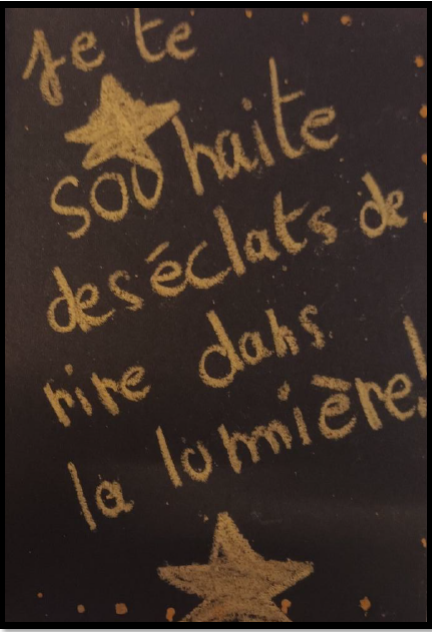 Je te
souhaite
des éclats de
rire dans
la lumière!